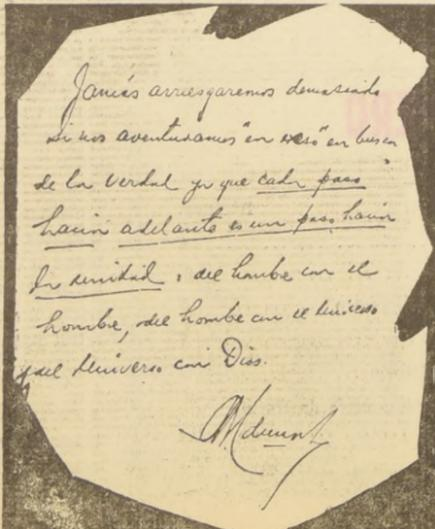 Jamás arriesgaremos demasiado
si nos aventuramos "en eso" en busca
de la verdad ya que cada paso
hacia adelante es un paso hacia
la unidad: del hombre con el
hombre, del hombre con el universo
y del Universo con Dios.